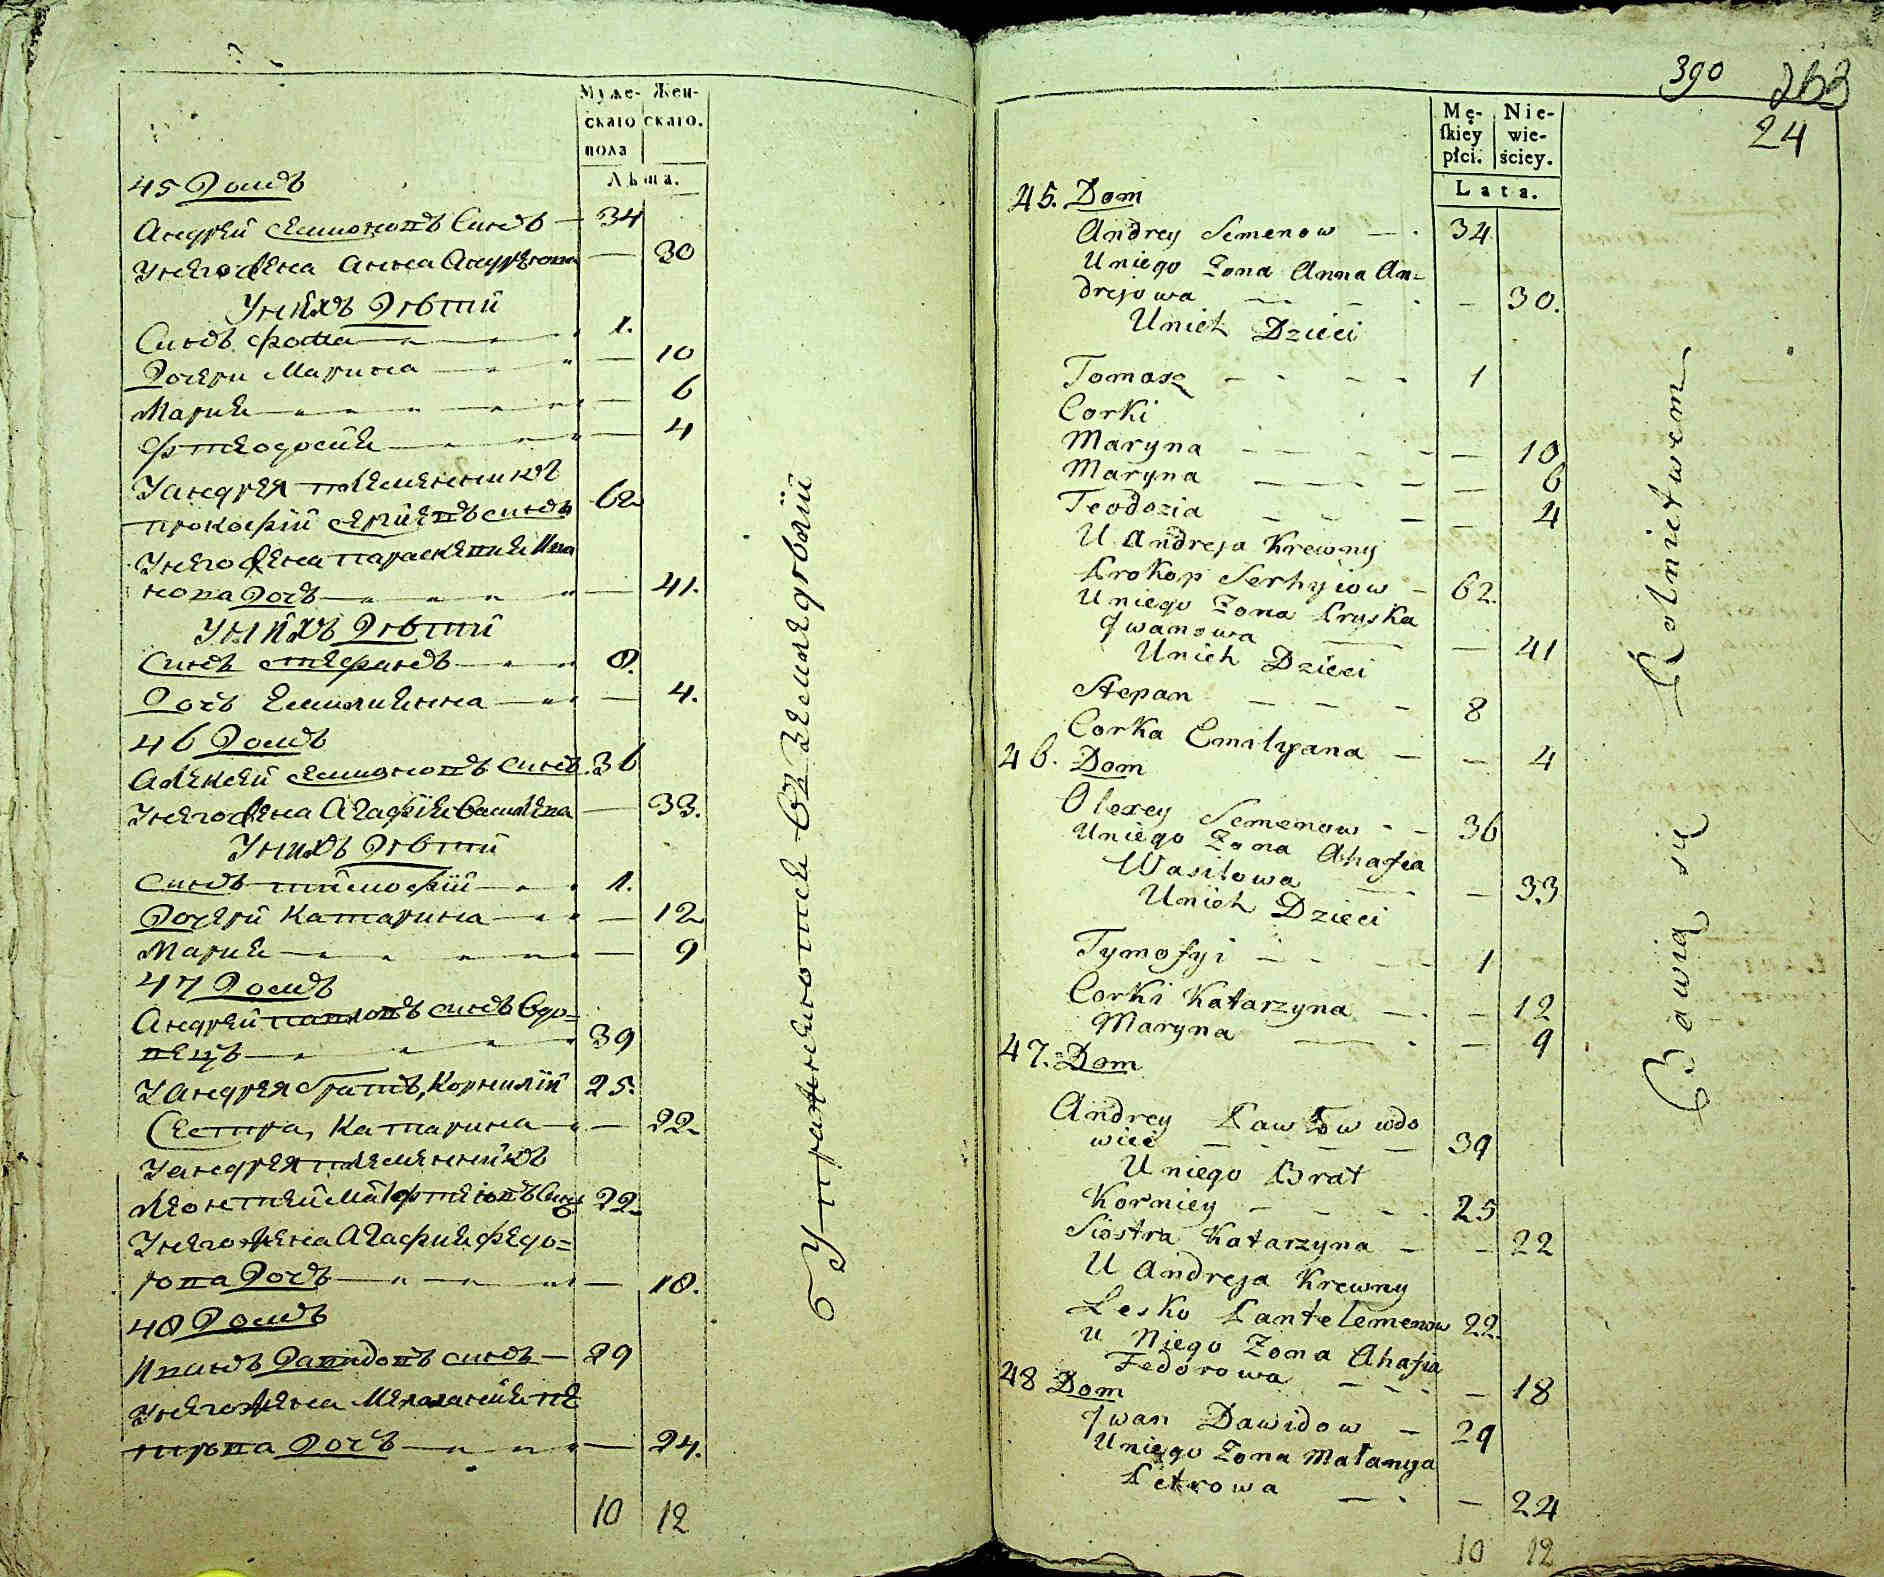 Муже-
скаго
пола
Жен-
скаго.
Лѣта.
45 Домъ
Андрей Семионовъ Синъ — 34
У него жена Анна Андреюва — 30
У нихъ Дѣтий
Синъ Фома 1.
Дочери Марина — 10
Мария — 6
Фтеодосия — 4
У андрея племенникъ
прокофий Сергиевъ синъ 62
У него жена параскевия Ива
нова Дочъ — 41.
У нихъ Дѣтий
Синъ стефанъ 8.
Дочъ Емилианна — 4.
46 Домъ
Алексей Семионовъ синъ. 36
У него жена Агафия Василева — 33.
У нихъ Дѣтий
Синъ тимофий 1.
Дочери Катарина — 12
Мария — 9
47 Домъ
Андрей павловъ синъ Вдо=
вецъ 39
У андрея Братъ, Корнилий 25.
Сестра, Катарина — 22
У андрея племенникъ
Леонтей 22.
У него жена Агафия Федо=
рова Дочъ — 18.
48 Домъ
Иванъ Давидовъ синъ — 29
У него жена Мелания пе
трова Дочъ — 24.
10 12
Упражняются въ Земледѣлий
390 263
24
Mę-
skiey
płci.
Nie-
wie-
ściey.
Lata.
45. Dom
Andrey Semenow — 34
U niego Zona Anna An=
drejowa — 30.
U nich Dzieci
Tomasz 1
Corki
Maryna — 10
Maryna — 6
Teodozia — 4
U Andreja Krewny
Prokop Serhyiow — 62.
U niego Zona Pryska
Jwanowa — 41
U nich Dzieci
Stepan 8
Corka Emilyana — 4
46. Dom
Olexey Semenow 36
U niego Zona Ahafia
Wasilowa — 33
U nich Dzieci
Tymofyi 1
Corki Katarzyna — 12
Maryna — 9
47. Dom
Andrey Pawłow wdo
wiec 39
U niego Brat
Korniey 25
Siostra Katarzyna — 22
U Andreja Krewny
Lesko Pantelemenow 22
U Niego Zona Ahafia
Fedorowa — 18
48 Dom
Jwan Dawidow — 29
U niego Zona Małanya
Petrowa — 24
10 12
Bawią się Rolnictwem